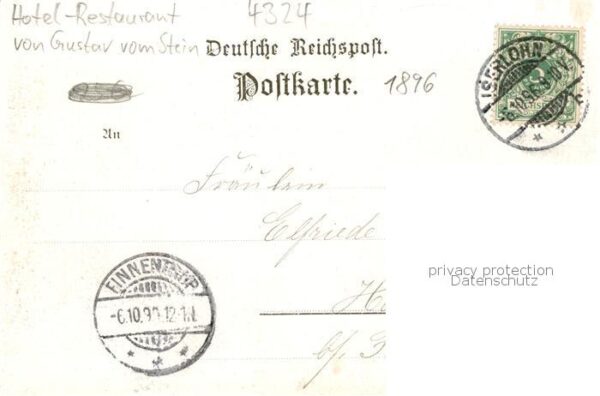 Hotel-Restaurant 4324
von Gustav vom Stein
Deutsche Reichspost.
Postkarte. 1896
ISERLOHN
An
Fräulein
Elfriede
privacy protection
Datenschutz
FINNENTROP
-6.10.96.12-1.N
H
b/.